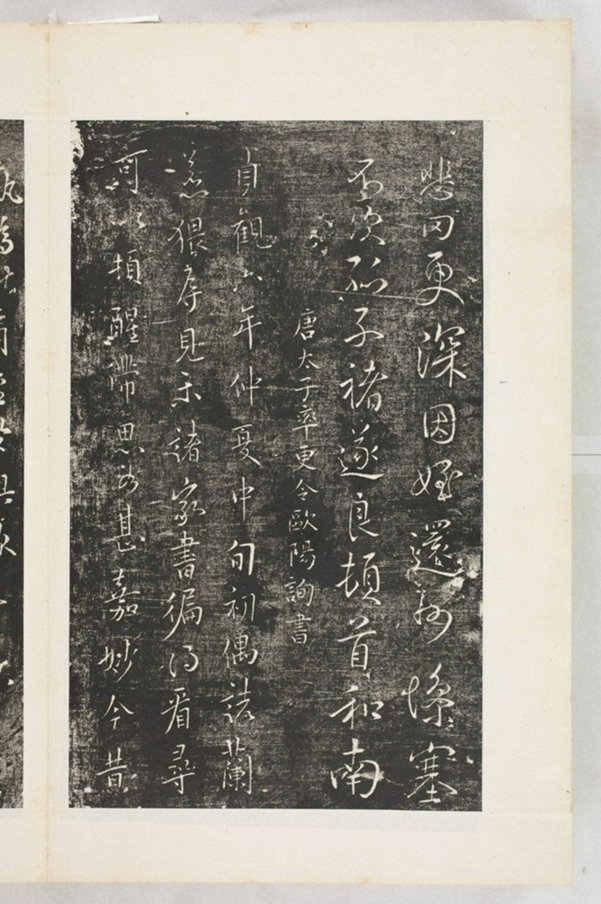 悲罔更深因姪還州慘塞
不次孤子褚遂良頓首和南
唐太子率更令歐陽詢書
貞觀六年仲夏中旬初偶詣蘭
若猥辱見示諸家書徧得看尋
可以頓醒滯思為甚嘉妙今昔